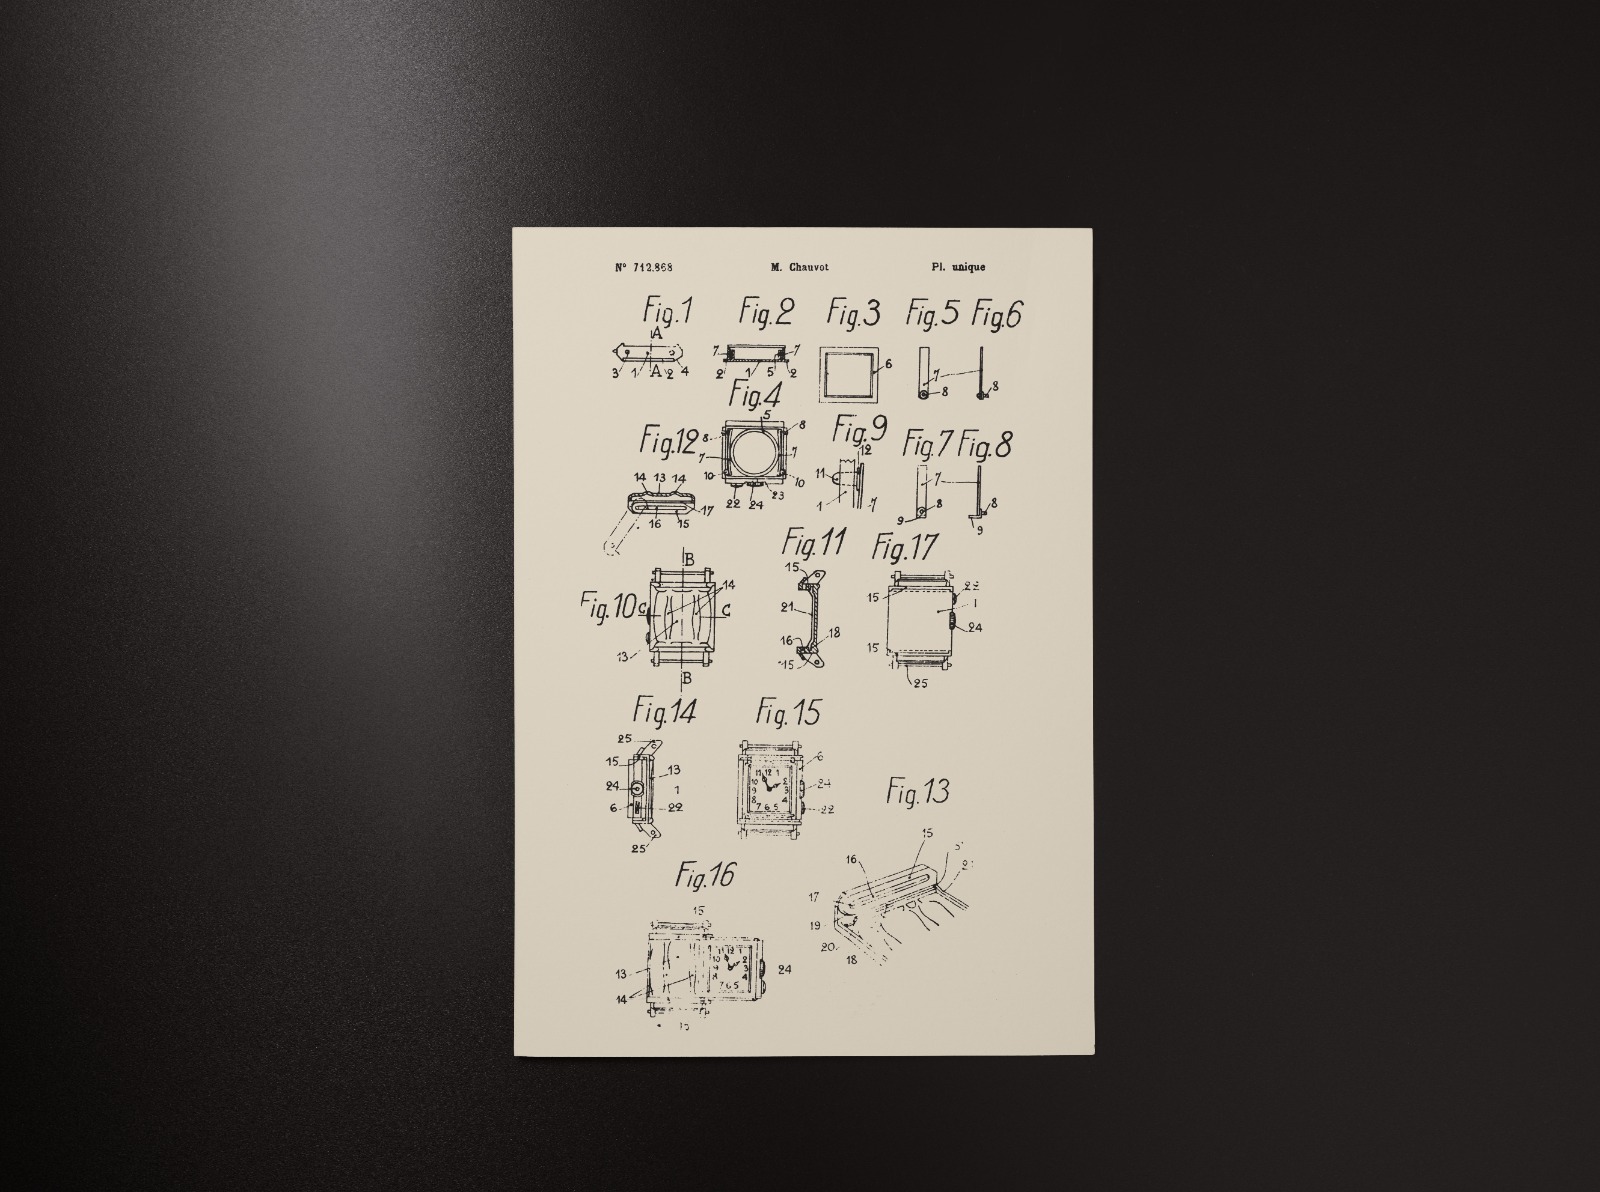 N° 712.868 M. Chauvot Pl. unique
Fig.1 Fig.2 Fig.3 Fig.5 Fig.6
A
3 1 A 2 4
7 7
2 1 5 2
6
7 8 8
Fig.4
5
8 8
7 7
10 10
22 24 23
Fig.12
14 13 14
17
16 15
Fig.9
12
11
1 7
Fig.7 Fig.8
7
8 8
9 9
Fig.11 Fig.17
B
Fig.10 C C
14
13
B
15
21
16 18
15
15 1
24
15
25
Fig.14 Fig.15
25
15 13
24 1
6 22
25
11 12 1
10 2
9 3
8 4
7 6 5
6
24
22
Fig.13
15
16
17
19
20
18
Fig.16
15
11 12 1
10 2
9 3
8 4
7 6 5
13
14
24